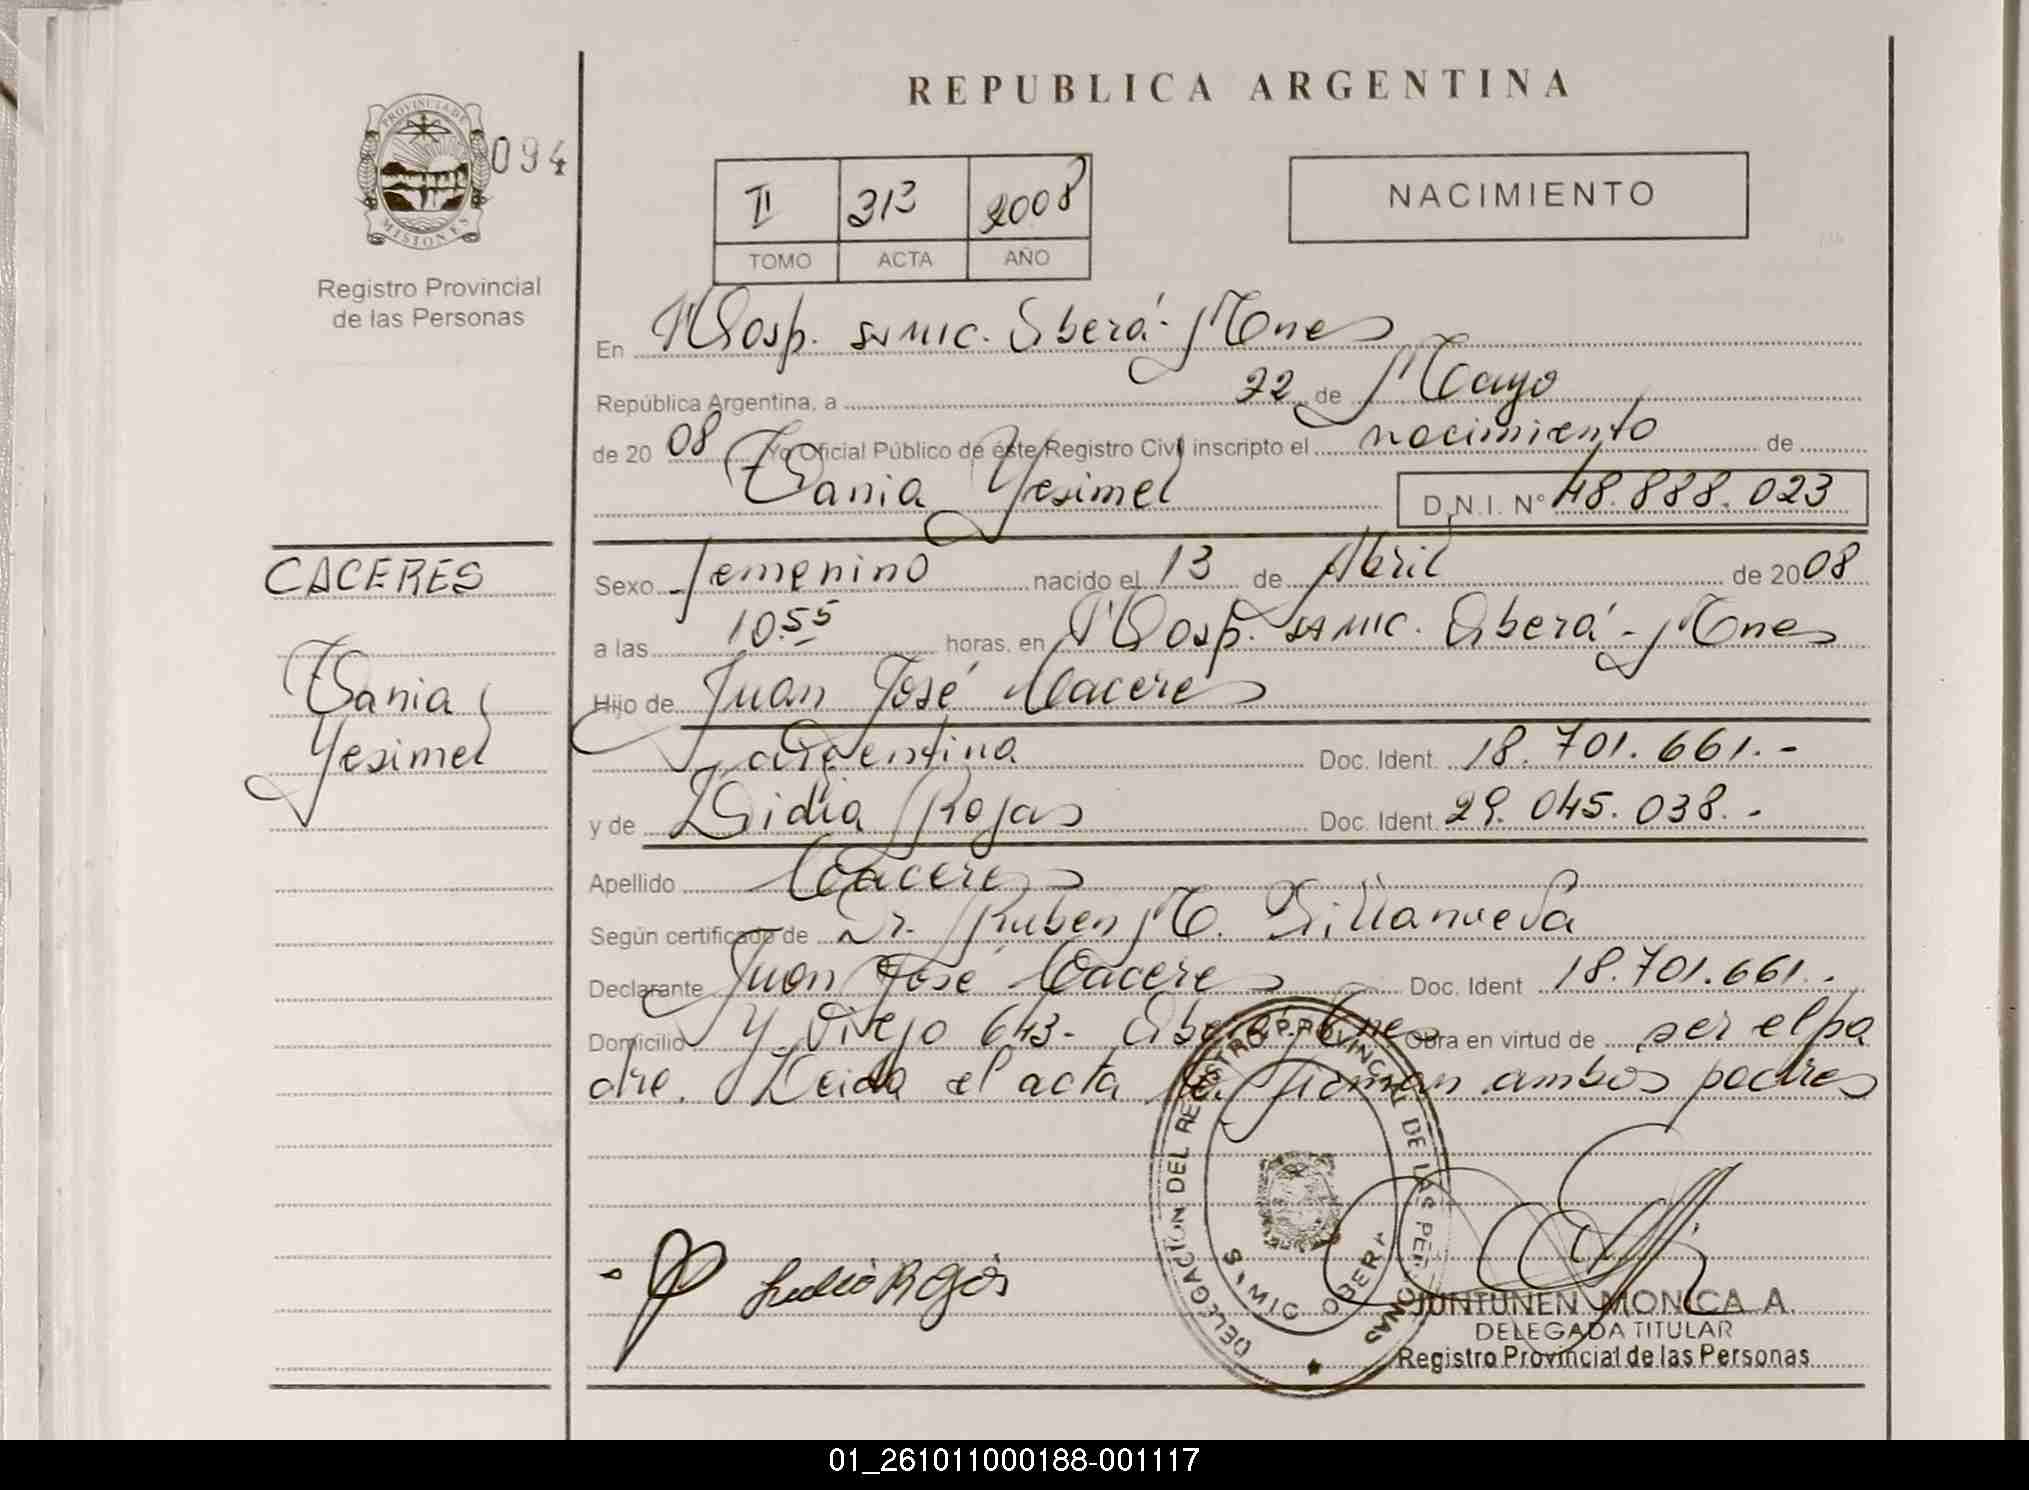 REPUBLICA ARGENTINA
PROVINCIA DE
MISIONES
094
Registro Provincial
de las Personas
II 313 2008
TOMO ACTA AÑO
NACIMIENTO
En Hosp. SAMIC. Oberá - Mnes
República Argentina, a 22 de Mayo
de 20 08 Yo Oficial Público de éste Registro Civil inscripto el nacimiento de
Tania Yesimel D.N.I. Nº 48.888.023
CACERES
Tania
Yesimel
Sexo femenino nacido el 13 de Abril de 2008
a las 10.55 horas, en Hosp. SAMIC. Oberá - Mnes
Hijo de Juan José Caceres
argentina Doc. Ident. 18.701.661.-
y de Lidia Rojas Doc. Ident. 29.045.038.-
Apellido Caceres
Según certificado de Dr. Ruben M. Villanueva
Declarante Juan José Caceres Doc. Ident 18.701.661.-
Domicilio Y. Viejo 643 - Oberá - Mnes Obra en virtud de ser el pa
dre. Leida el acta la firman ambos padres
DELEGACION DEL REGISTRO PROVINCIAL DE LAS PERSONAS
SAMIC OBERA
Lidia Rojas
JUNTUNEN MONICA A.
DELEGADA TITULAR
Registro Provincial de las Personas
01_261011000188-001117